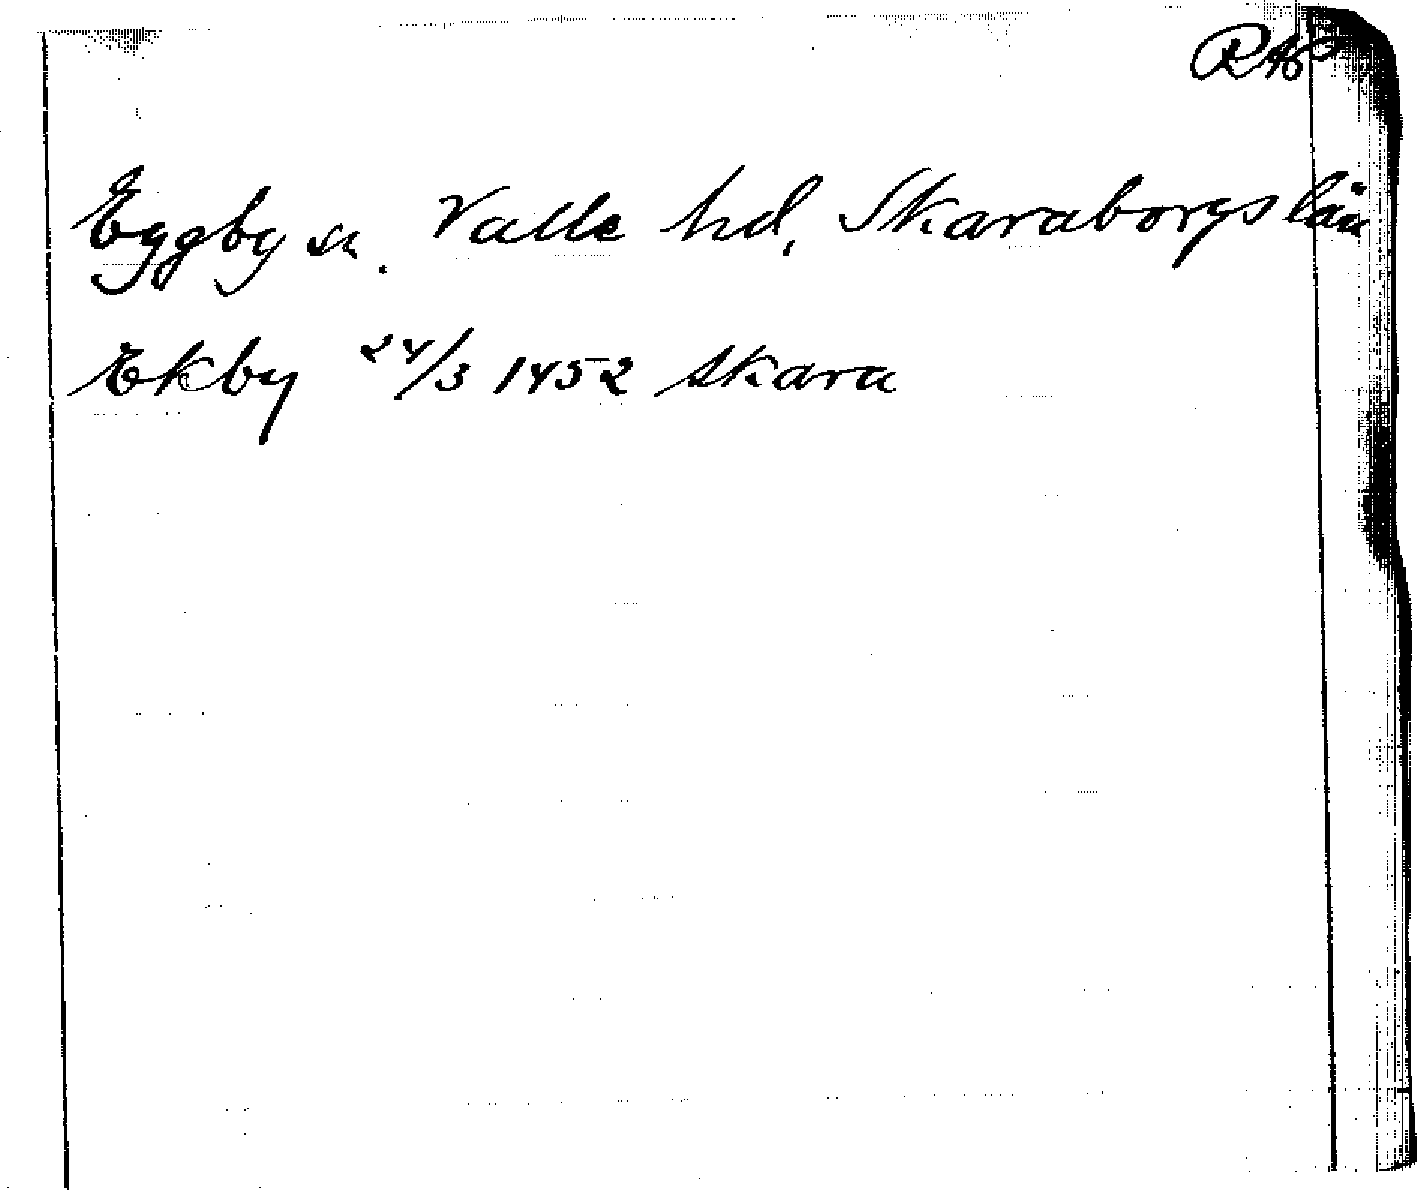 RAP
Eggby sn. Valle hd, Skaraborgs län
Ekby 24/3 1452 Skara